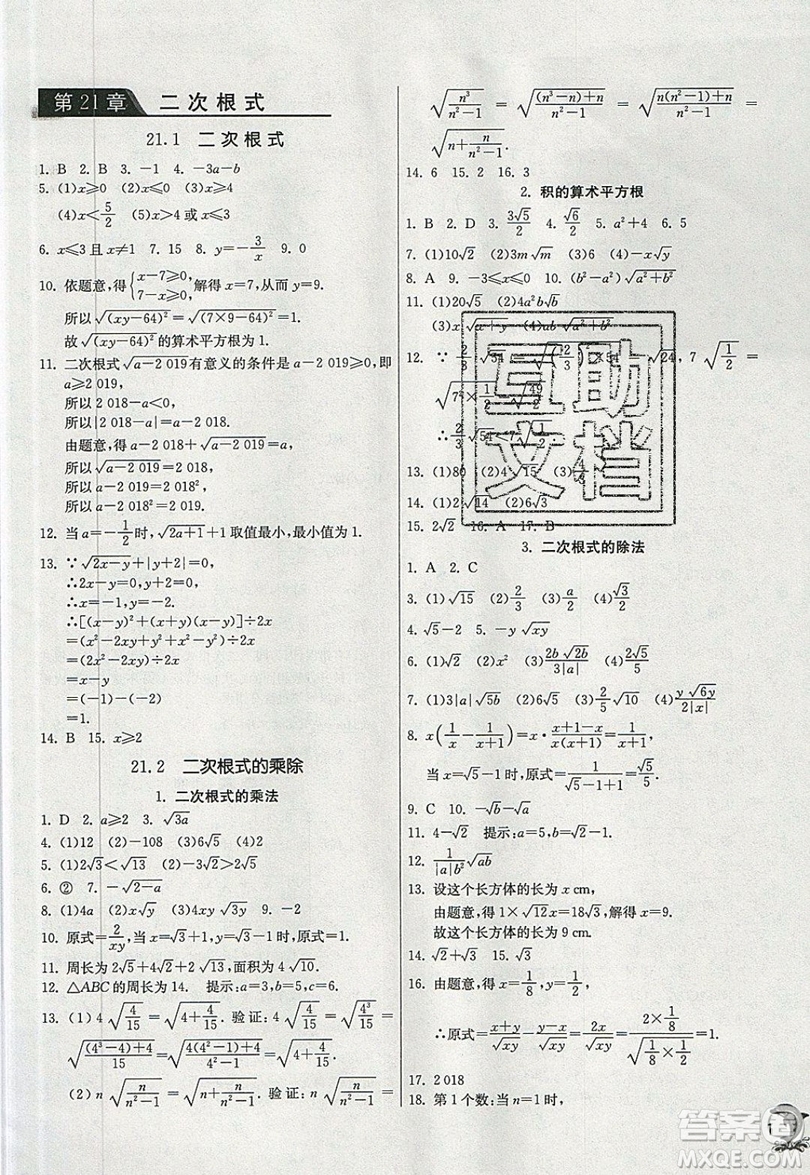 第21章 二次根式
21.1 二次根式
1. B 2. B 3. −1 4. −3a−b
5. (1)x≥0 (2)x≤0 (3)x≥4
(4)x<5/2 (5)x≥0 (6)x≥3
6. x≤3 且 x≠1 7. 15 8. y=−3/x 9. 0
10. 依题意,得{x−7≥0, 7−x≥0, 解得 x=7,从而 y=9.
所以√((xy−64)²)=√((7×9−64)²)=1.
故√((xy−64)²)的算术平方根为1.
11. 二次根式√(a−2 019)有意义的条件是 a−2 019≥0,即
a≥2 019,
所以 2 018−a<0,
所以|2 018−a|=a−2 018.
由题意,得 a−2 018+√(a−2 019)=a,
所以√(a−2 019)=2 018,
所以 a−2 019=2 018²,
所以 a−2 018²=2 019.
12. 当 a=−1/2时,√(2a+1)+1取值最小,最小值为1.
13. ∵√(2x−y)+|y+2|=0,
∴2x−y=0,y+2=0,
∴x=−1,y=−2.
∴[(x−y)²+(x+y)(x−y)]÷2x
=(x²−2xy+y²+x²−y²)÷2x
=(2x²−2xy)÷2x
=x−y
=(−1)−(−2)
=1.
14. B 15. x≥2
21.2 二次根式的乘除
1. 二次根式的乘法
1. D 2. a≥2 3. √(3a)
4. (1)12 (2)−108 (3)6√5 (4)2
5. (1)2√3<√13 (2)13√2
6. ② 7. −√(2−a)
8. (1)4a (2)x√y (3)4xy√(3y) 9. −2
10. 原式=2/(xy),当 x=√3+1,y=√3−1时,原式=1.
11. 周长为2√5+4√2+2√13,面积为4√10.
12. △ABC的周长为14. 提示:a=3,b=5,c=6.
13. (1) 4√(4/15)=√(4+4/15). 验证:4√(4/15)=√(4³/15)=
√(((4³−4)+4)/15)=√((4(4²−1)+4)/(4²−1))=√(4+4/15).
(2) n√(n/(n²−1))=√(n+n/(n²−1)). 验证:n√(n/(n²−1))=
√(n³/(n²−1))=√(((n³−n)+n)/(n²−1))=√((n(n²−1)+n)/(n²−1))=
√(n+n/(n²−1)).
14. 6 15. 2 16. 3
2. 积的算术平方根
1. B 2. D 3. 3√5/2 4. √6/2 5. a²+4 6. 5
7. (1)10√2 (2)3m√m (3)6c (4)−x√y
8. A 9. −3≤x≤0 10. (b²−a²)√(a²+b²)
11. (1)20√5 (2)4a²b√b
12. ∵ 2/3√54=√((2/3)²×54)=√24, 7√(1/2)=
√(7²×1/2)=√(49/2),
∴2/3√54<7√(1/2).
13. (1)80 (2)4√15
14. (1)2√14 (2)6√3
15. 2√2 16. A 17. B
3. 二次根式的除法
1. A 2. C
3. (1)√15 (2)2/3 (3)a/2 (4)√2/3
4. √5−2 5. −y√(xy)
6. (1)√2 (2)x² (3)2b√(2b)/(3|a|) (4)2√5/5
7. (1)3|a|√(5b) (2)6√5 (3)2/5√10 (4)y√(6y)/(2|x|)
8. x(1/x−1/(x+1))=x·(x+1−x)/(x(x+1))=1/(x+1),
当 x=√5−1时,原式=1/(√5−1+1)=1/√5=√5/5.
9. C 10. −√b−√a
11. 4−√2 提示:a=5,b=1.
12. 1/(|a|b²)√(ab)
13. 设这个长方体的长为 x cm,
由题意,得 1×√12x=18√3,解得 x=9.
故这个长方体的长为 9 cm.
14. √2+√3 15. √3
16. 由题意,得 x=1/8,y=1/2,
∴原式=(x+y)/√(xy)−(y−x)/√(xy)=2x/√(xy)=(2×1/8)/√(1/8×1/2)=1.
17. 2 018
18. 第1个数:当 n=1时,
互助
文档
答案
MXQE.COM